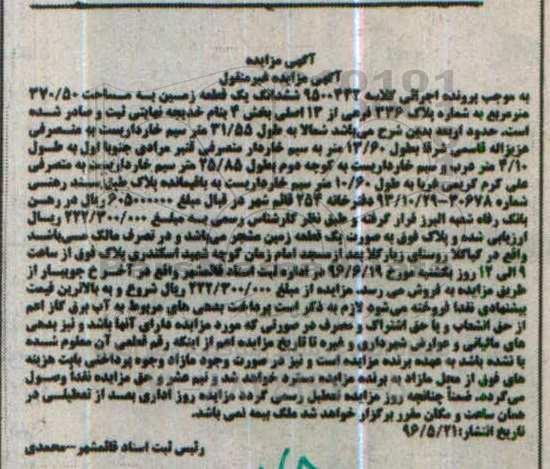 آگهی مزایده
آگهی مزایده غیرمنقول
به موجب پرونده اجرائی کلاسه ۹۵۰۰۲۴۲ ششدانگ یک قطعه زمین به مساحت ۳۷۰/۵۰
مترمربع به شماره پلاک ۳۳۶ فرعی از ۱۳ اصلی بخش ۴ بنام خدیجه نهایتی ثبت و صادر شده
است. حدود اربعه بدین شرح می‌باشد شمالا به طول ۳۱/۵۵ متر سیم خارداریست به متصرفی
عزیزاله قاسمی شرقا بطول ۱۳/۶۰ متر به سیم خاردار متصرفی قنبر مرادی جنوبا اول به طول
۴/۱۰ متر درب و سیم خارداریست به کوچه دوم بطول ۲۵/۸۵ متر سیم خارداریست به متصرفی
علی کرم کریمی غربا به طول ۱۰/۶۰ متر سیم خارداریست به باقیمانده پلاک طبق سند رهنی
شماره ۳۰۶۷۸-۹۳/۱۰/۲۹ دفترخانه ۲۵۴ قائم شهر در قبال مبلغ ۶۰۵۰۰۰۰۰۰ ریال در رهن
بانک رفاه شعبه البرز قرار گرفته و طبق نظر کارشناس رسمی به مبلغ ۲۲۲/۳۰۰/۰۰۰ ریال
ارزیابی شده و پلاک فوق به صورت یک قطعه زمین مشجر می‌باشد و در تصرف مالک می‌باشد
واقع در کیاکلا روستای زیارکلا بعد از مسجد امام زمان کوچه شهید اسکندری پلاک فوق از ساعت
۹ الی ۱۲ روز یکشنبه مورخ ۹۶/۶/۱۹ در اداره ثبت اسناد قائمشهر واقع در آخـ رخ جویبار از
طریق مزایده به فروش می رسد. مزایده از مبلغ ۲۲۲/۳۰۰/۰۰۰ ریال شروع و به بالاترین قیمت
پیشنهادی نقدا فروخته می‌شود لازم به ذکر است پرداخت بدهی های مربوط به آب برق گاز اعم
از حق انشعاب و یا حق اشتراک و مصرف در صورتی که مورد مزایده دارای آنها باشد و نیز بدهی
های مالیاتی و عوارض شهرداری و غیره تا تاریخ مزایده اعم از اینکه رقم قطعی آن معلوم شده
یا نشده باشد به عهده برنده مزایده است و نیز در صورت وجود مازاد وجوه پرداختی بابت هزینه
های فوق از محل مازاد به برنده مزایده مسترد خواهد شد و نیم عشر و حق مزایده نقدا وصول
می‌گردد. ضمناً چنانچه روز مزایده تعطیل رسمی گردد مزایده روز اداری بعد از تعطیلی در
همان ساعت و مکان مقرر برگزار خواهد شد ملک بیمه نمی باشد.
تاریخ انتشار: ۹۶/۵/۲۱
رئیس ثبت اسناد قائمشهر-محمدی